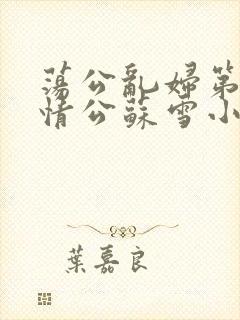 蕩公亂婦第
情公蘇雪小
葉嘉良